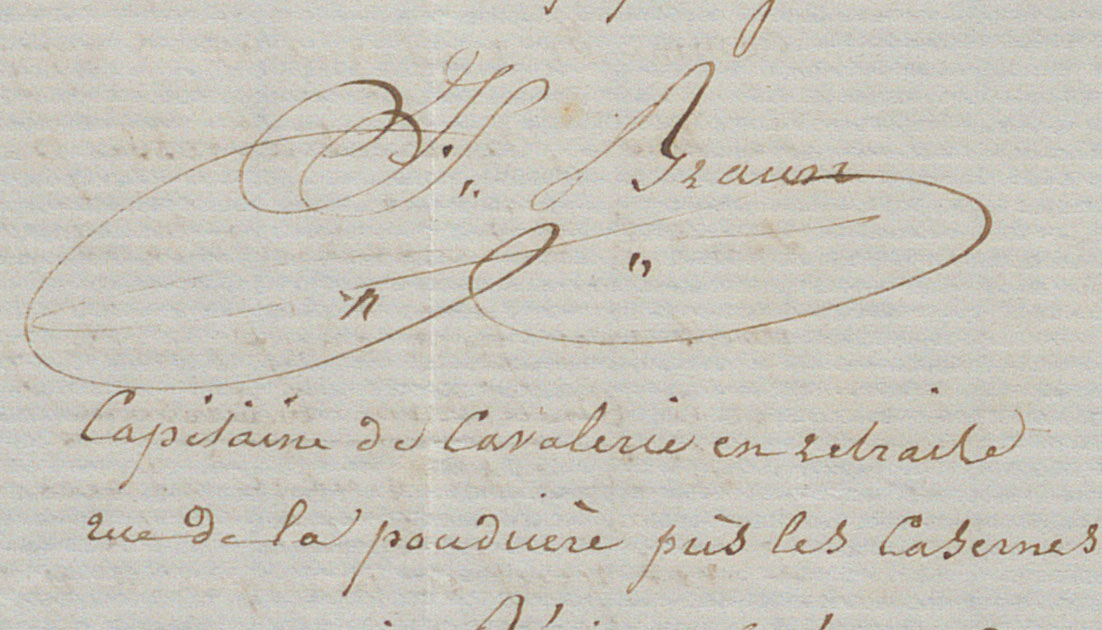 H. Braun
Capitaine de Cavalerie en retraite
rue de la poudrière près les Casernes